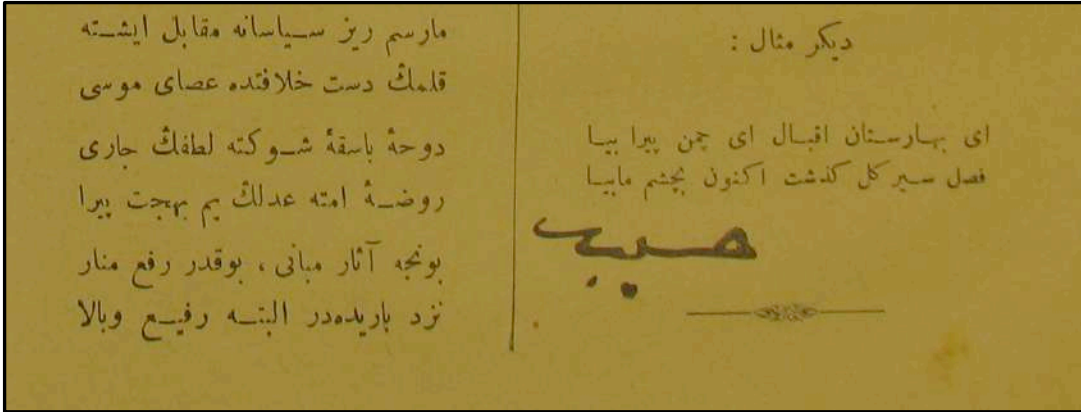 دیکر مثال :
ای بهارستان اقبال ای چمن پیرا بیا
فصل سیر کل کذشت اکنون بچشم مابیا
حسیب
مارسم ریز سیاسانه مقابل ایشته
قلمڭ دست خلافتده عصای موسی
دوحهٔ باسقهٔ شوکته لطفڭ جاری
روضهٔ امته عدلڭ یم بهجت پیرا
بونجه آثار مبانی ، بوقدر رفع منار
نزد باریده‌در البته رفیع وبالا